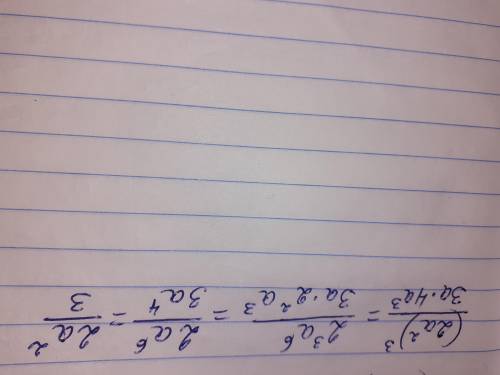 (2a²)³ / 3a·4a³ = 2³a⁶ / 3a·2²a³ = 2a⁶ / 3a⁴ = 2a² / 3